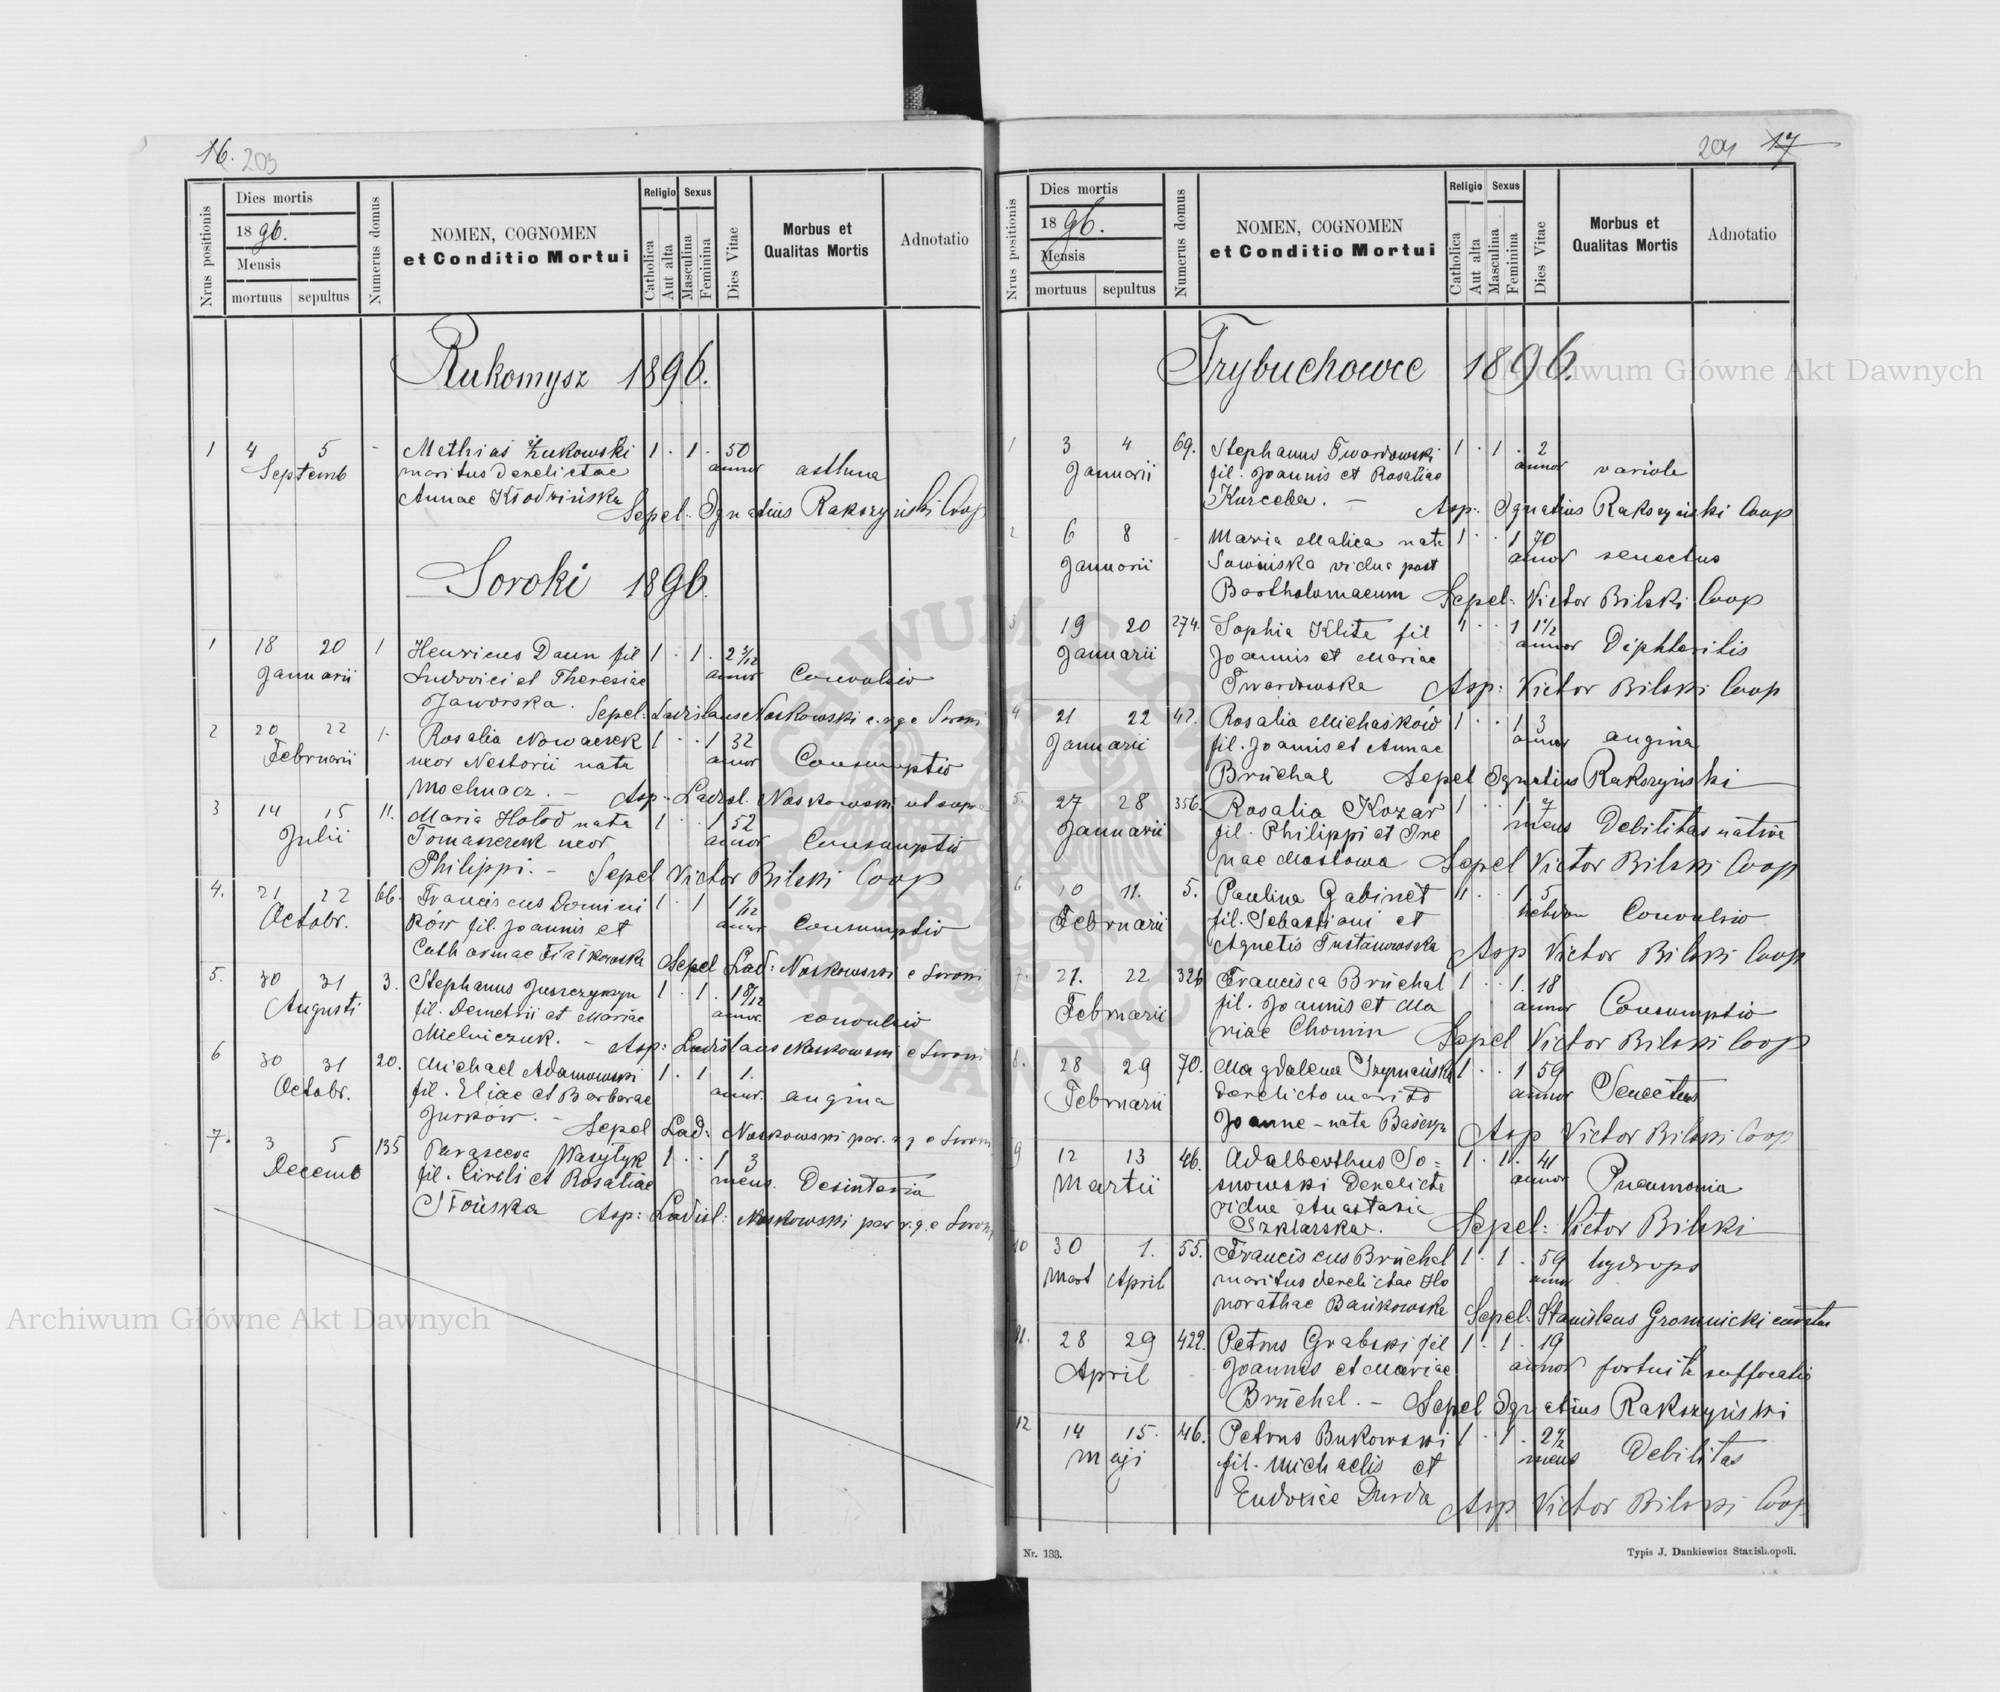 16. 203
Nrus positionis
Dies mortis
1896.
Mensis
mortuus sepultus
Numerus domus
NOMEN, COGNOMEN
et Conditio Mortui
Religio
Catholica
Aut alta
Sexus
Masculina
Feminina
Dies Vitae
Morbus et
Qualitas Mortis
Adnotatio
Rukomysz 1896.
1 4 5 - Mathias Żukowski 1 . 1 . 50
Septemb maritus derelictae annor asthma
Annae Kłodzińska
Sepel. Ignatius Rakszyński Coop
Soroki 1896.
1 18 20 1 Henricus Daun fil 1 . 1 . 2
Januarii Ludovici et Theresiae annor Convulsio
Jaworska. Sepel: Ladislaus Noskowski
2 20 22 1. Rosalia Nowaczek 1 . . 1 32
Februarii uxor Nestorii nata annor Consumptio
Mochnacz. - Asp. Ladisl. Noskowski ut supra
3 14 15 11. Maria Hołod nata 1 . . 1 52
Julii Tomaszczuk uxor annor Consumptio
Philippi. - Sepel Victor Bilski Coop
4. 21 22 66. Franciscus Domini 1 . 1 1
Octobr. ków fil. Joannis et annor Consumptio
Catharinae Fiałkowska Sepel Lad: Noskowski e Soroki
5. 30 31 3. Stephanus Juszczyszyn 1 . 1 . 1 8/12
Augusti fil. Demetrii et Mariae annor. convulsio
Mielniczuk. - Asp: Ladislaus Noskowski e Soroki
6 30 31 20. Michael Adamowski 1 . 1 1.
Octobr. fil. Eliae et Barbarae annor. angina
Jurków. - Sepel Lad: Noskowski par. r. g. e Soroki
7. 3 5 135 Parasceva Wasylyk 1 . . 1 3
Decemb fil. Cirili et Rosaliae mens. Desinteria
Słońska Asp: Ladisl: Noskowski par r. g. e Soroki
204 17
Nrus positionis
Dies mortis
1896.
Mensis
mortuus sepultus
Numerus domus
NOMEN, COGNOMEN
et Conditio Mortui
Religio
Catholica
Aut alta
Sexus
Masculina
Feminina
Dies Vitae
Morbus et
Qualitas Mortis
Adnotatio
Trybuchowce 1896.
1 3 4 69. Stephanus Twardowski 1 . 1 . 2
Januarii fil. Joannis et Rosaliae annor variola
Kurceba. - Asp: Ignatius Rakszyński Coop
2 6 8 - Maria Malica nata 1 . . 1 70
Januarii Sawińska vidua post annor senectus
Bartholomaeum Sepel: Victor Bilski Coop
3 19 20 274. Sophia Klita fil 1 . . 1 1 1/2
Januarii Joannis et Mariae annor Diphteritis
Twardowska Asp: Victor Bilski Coop
4 21 22 42. Rosalia Michaśków 1 . . 1 3
Januarii fil. Joannis et Annae annor angina
Brüchal Sepel Ignatius Rakszyński
5. 27 28 356. Rosalia Kozar 1 . . 1
Januarii fil. Philippi et Ire mens Debilitas nativa
nae Mostowa Sepel Victor Bilski Coop
6 10 11. 5. Paulina Gabinet 1 . . 1 5
Februarii fil. Sebastiani et hebdom Convulsio
Agnetis Trustanowska Asp Victor Bilski Coop
7. 21. 22 326 Francisca Brüchal 1 . . 1. 18
Februarii fil. Joannis et Ma annor Consumptio
riae Chomin Sepel Victor Bilski Coop
8. 28 29 70. Magdalena Szymańska 1 . . 1 59
Februarii derelicto marito annor Senectus
Joanne - nata Sepel Asp Victor Bilski Coop
9 12 13 46. Adalberthus So= 1 . 1 . 41
Martii snowski derelicta annor Pneumonia
vidua Anastasia
Szklarska. Sepel: Victor Bilski
10 30 1. 55. Franciscus Brüchal 1 . 1 . 59 hydrops
Mart April maritus derelictae Ho annor
norathae Bańkowska Sepel. Stanislaus Gromnicki curatus
11. 28 29 422. Petrus Grabski fil 1 . 1 . 19
April Joannis et Mariae annor fortuita suffocatio
Brüchal. - Sepel Ignatius Rakszyński
12 14 15. 46. Petrus Bukowski 1 . 1 . 2 1/2
Maji fil. Michaelis et mens Debilitas
Eudoxiae Durda Asp Victor Bilski Coop
Nr. 133.
Typis J. Dankiewicz Stanislaopoli.
Archiwum Główne Akt Dawnych
Archiwum Główne Akt Dawnych
ARCHIWUM GŁÓWNE AKT DAWNYCH